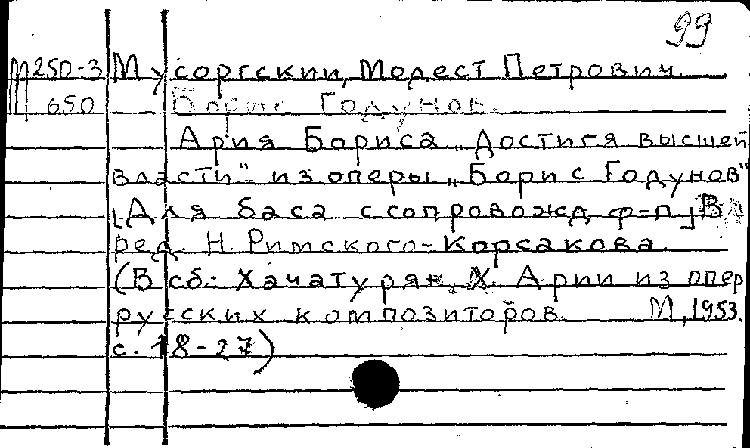 99
М250-3 Мусоргский, Модест Петрович.
650 Борис Годунов.
Ария Бориса „Достиг я высшей
власти" из оперы „Борис Годунов"
[Для баса с сопровожд. ф-п.] В
ред. Н. Римского-Корсакова.
(В сб.: Хачатурян, Х. Арии из опер
русских композиторов. М, 1953.
с. 18-27)